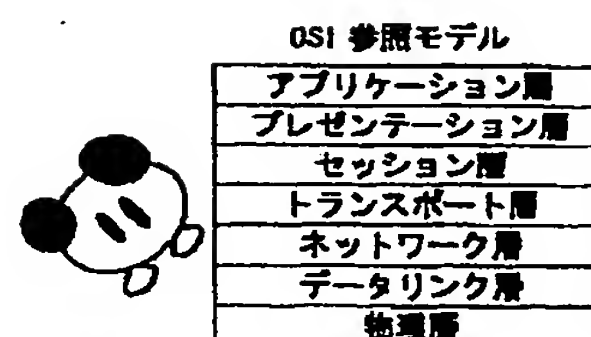 OSI 参照モデル
アプリケーション層
プレゼンテーション層
セッション層
トランスポート層
ネットワーク層
データリンク層
物理層